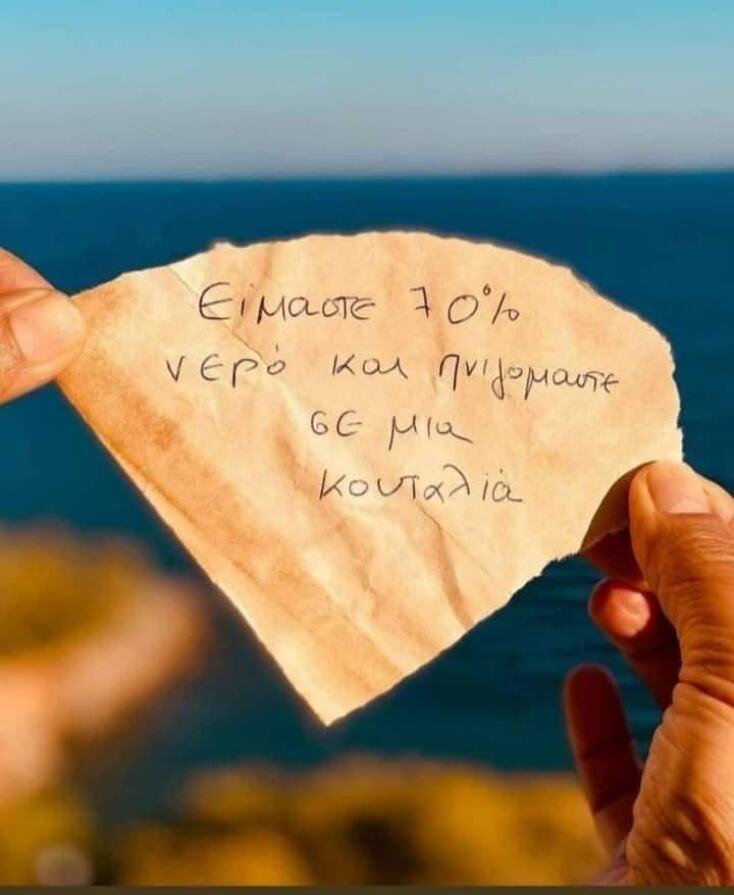 Είμαστε 70%
νερό και πνιγόμαστε
σε μια
κουταλιά